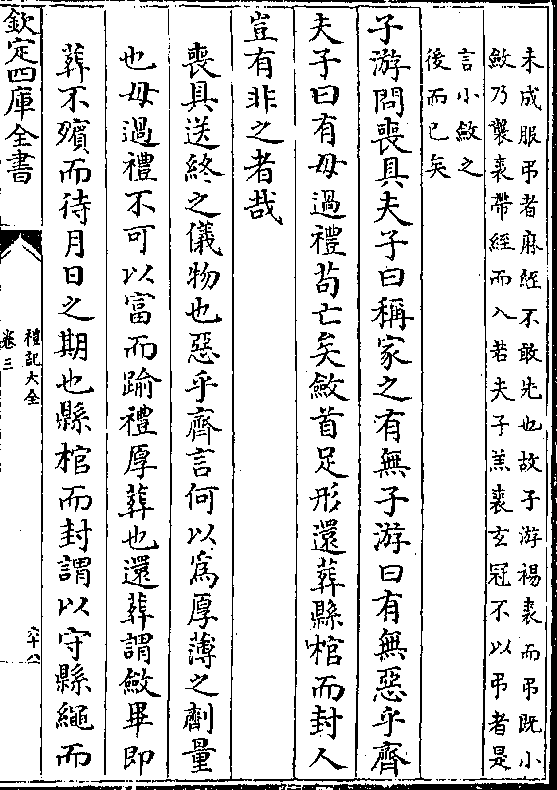 未成服弔者麻絰不敢先也故子游裼裘而弔既小
斂乃襲裘帶絰而入若夫子羔裘玄冠不以弔者是
言小斂之
後而已矣
子游問喪具夫子曰稱家之有無子游曰有無惡乎齊
夫子曰有毋過禮苟亡矣斂首足形還葬縣棺而封人
豈有非之者哉
喪具送終之儀物也惡乎齊言何以為厚薄之劑量
也毋過禮不可以富而踰禮厚葬也還葬謂斂畢即
葬不殯而待月日之期也縣棺而封謂以守縣繩而
欽定四庫全書
禮記大全
卷三
六十八